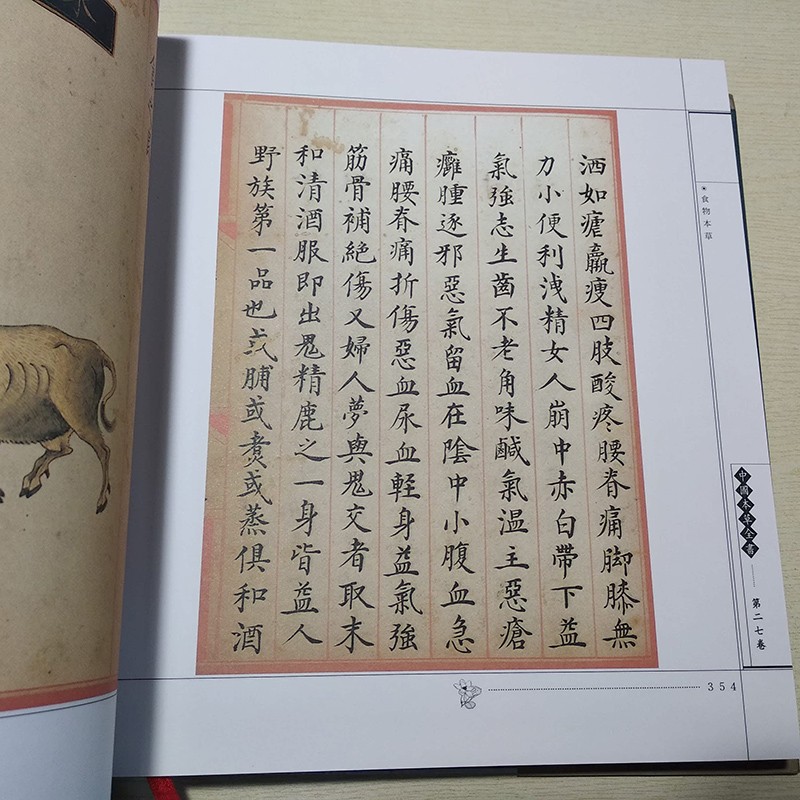 洒如瘧羸瘦四肢酸疼腰脊痛脚膝無
力小便利洩精女人崩中赤白帶下益
氣強志生齒不老角味鹹氣温主惡瘡
癰腫逐邪惡氣留血在陰中小腹血急
痛腰脊痛折傷惡血尿血輕身益氣強
筋骨補絶傷又婦人夢與鬼交者取末
和清酒服即出鬼精鹿之一身皆益人
野族第一品也或脯或煮或蒸俱和酒
食物本草
中國本草全書
第二七卷
354